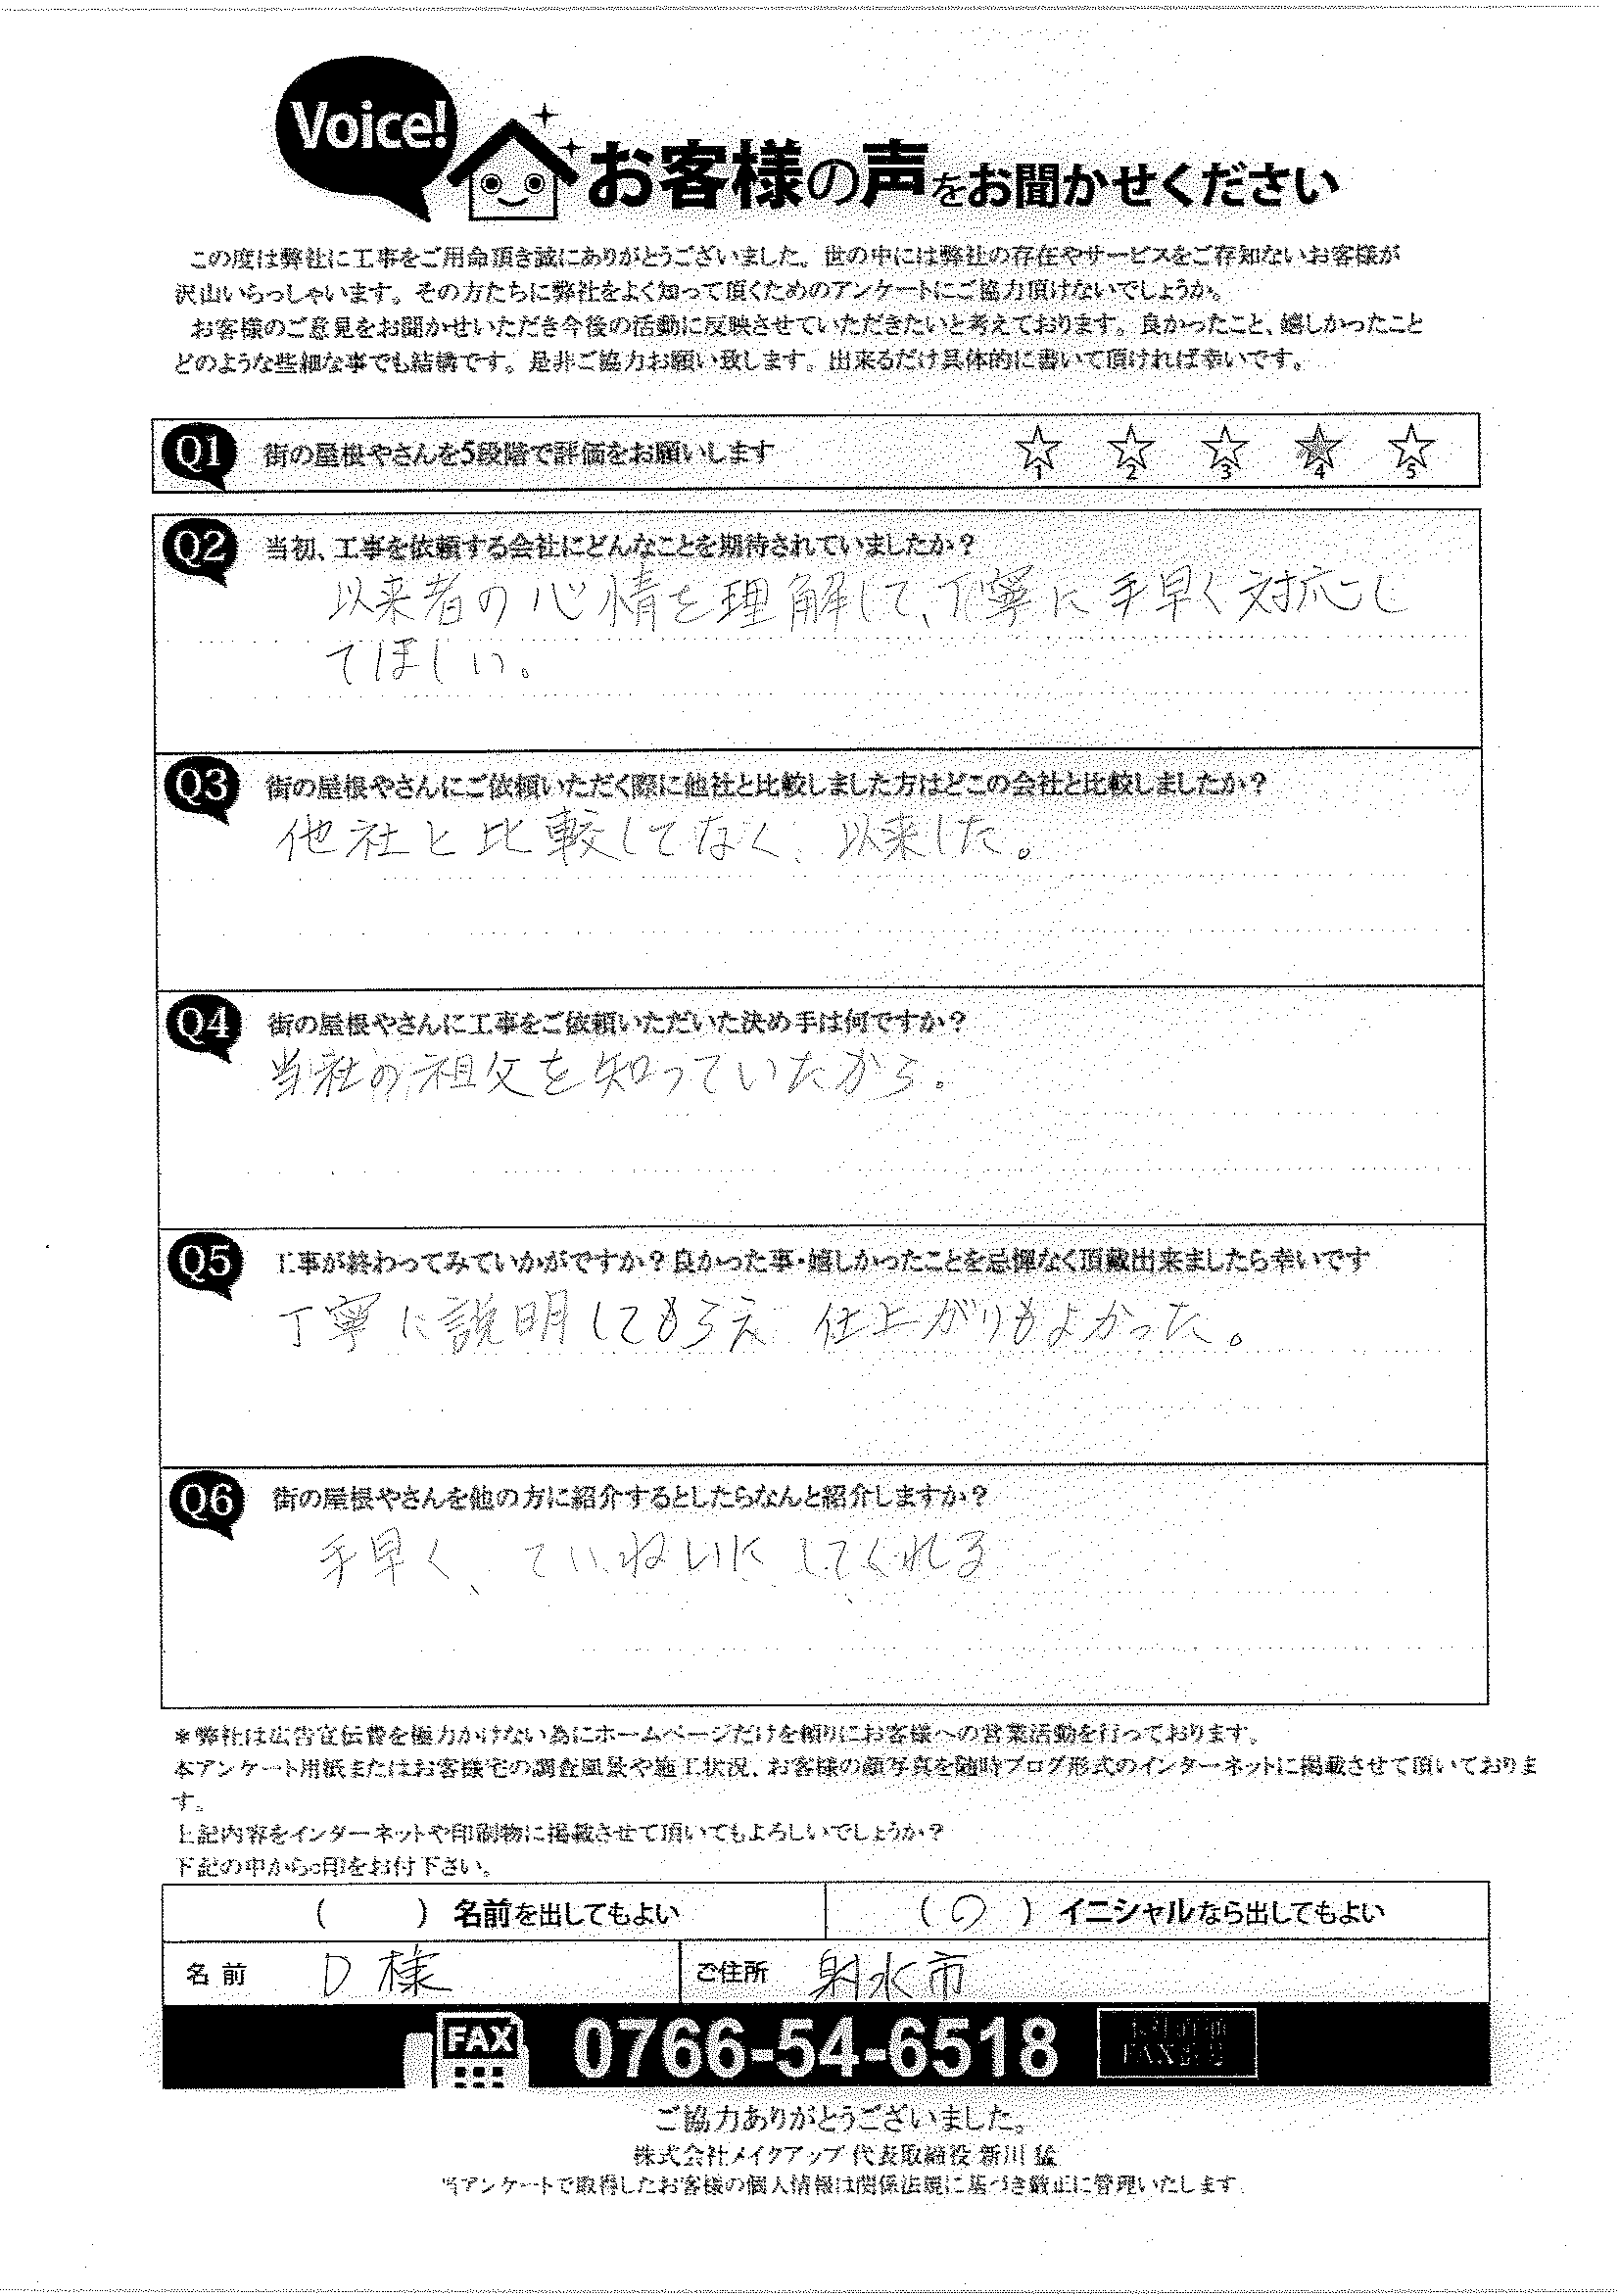 Voice!
お客様の声をお聞かせください
この度は弊社に工事をご用命頂き誠にありがとうございました。世の中には弊社の存在やサービスをご存知ないお客様が
沢山いらっしゃいます。その方たちに弊社をよく知って頂くためのアンケートにご協力頂けないでしょうか。
お客様のご意見をお聞かせいただき今後の活動に反映させていただきたいと考えております。良かったこと、嬉しかったこと
どのような些細な事でも結構です。是非ご協力お願い致します。出来るだけ具体的に書いて頂ければ幸いです。
Q1 街の屋根やさんを5段階で評価をお願いします 1 2 3 4 5
Q2 当初、工事を依頼する会社にどんなことを期待されていましたか?
以来者の心情を理解して、丁寧に手早く対応し
てほしい。
Q3 街の屋根やさんにご依頼いただく際に他社と比較しました方はどこの会社と比較しましたか?
他社と比較してなく、以来した。
Q4 街の屋根やさんに工事をご依頼いただいた決め手は何ですか?
当社の祖父を知っていたから。
Q5 工事が終わってみていかがですか?良かった事・嬉しかったことを忌憚なく頂戴出来ましたら幸いです
丁寧に説明してもらえ 仕上がりもよかった。
Q6 街の屋根やさんを他の方に紹介するとしたらなんと紹介しますか?
手早く、ていねいにしてくれる
*弊社は広告宣伝費を極力かけない為にホームページだけを頼りにお客様への営業活動を行っております。
本アンケート用紙またはお客様宅の調査風景や施工状況、お客様の顔写真を随時ブログ形式のインターネットに掲載させて頂いておりま
す。
上記内容をインターネットや印刷物に掲載させて頂いてもよろしいでしょうか?
下記の中から○印をお付下さい。
( ) 名前を出してもよい (○) イニシャルなら出してもよい
名前 D様 ご住所 射水市
FAX 0766-54-6518
ご協力ありがとうございました。
株式会社メイクアップ 代表取締役 新川
当アンケートで取得したお客様の個人情報は関係法規に基づき厳正に管理いたします